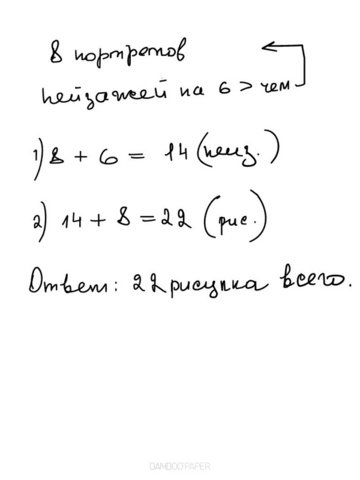 8 портретов
пейзажей на 6 > чем
1) 8 + 6 = 14 (пейз.)
2) 14 + 8 = 22 (рис.)
Ответ: 22 рисунка всего.